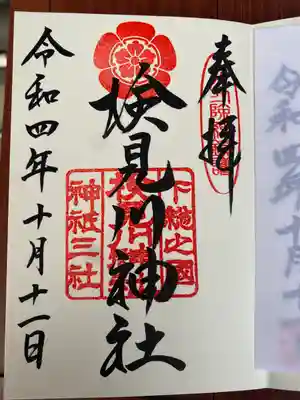 奉拝
検見川神社
令和四年十月十一日
下総之國
神祇三社